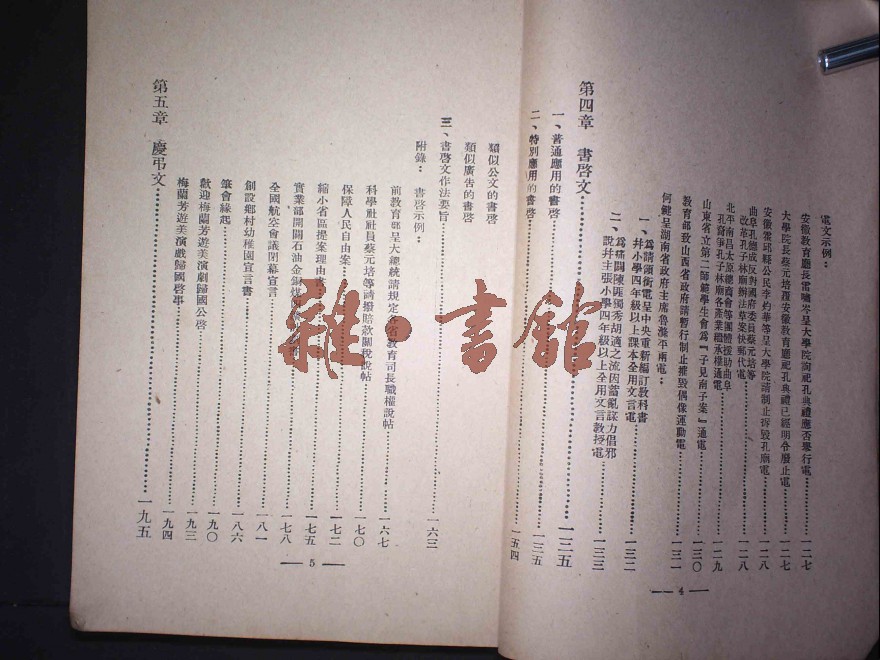 電文示例：
安徽教育廳長雷嘯岑呈大學院詢祀孔典禮應否舉行電……一二七
大學院長蔡元培覆安徽教育廳祀孔典禮已經明令廢止電……一二七
安徽霍邱縣公民李杓華等呈大學院請制止拆毀孔廟電……一二八
曲阜孔德成反對國府委員蔡元培等
改革孔子林廟辦法草案快郵代電……一二八
北平南昌太原總商會等團體援助曲阜
孔裔爭孔子林廟各產業權承樸通電……一二九
山東省立第二師範學生會爲『子見南子案』通電……一三〇
教育部致山西省政府請暫行制止摧毀偶像運動電……一三一
何鍵呈湖南省政府主席魯滌平兩電：
一、爲請領銜電呈中央重新編訂教科書
幷小學四年級以上課本全用文言電……一三二
二、爲痛闢陳匪獨秀胡適之流因蓄亂謀力倡邪
說幷主張小學四年級以上全用文言教授電……一三三
第四章 書啓文……一三五
一、普通應用的書啓……一三五
二、特別應用的書啓……一五四
— 4 —
類似公文的書啓
類似廣告的書啓
三、書啓文作法要旨……一六三
附錄：書啓示例：
前教育部呈大總統請規定各省教育司長職權說帖……一六七
科學社社員蔡元培等請撥賠款關稅說帖……一七〇
保障人民自由案……一七二
縮小省區提案理由書……一七五
實業部開闢石油金銅煤……一七八
全國航空會議閉幕宣言……一八一
創設鄉村幼稚園宣言書……一八六
筆會緣起……一九〇
歡迎梅蘭芳遊美演劇歸國公啓……一九三
梅蘭芳遊美演戲歸國啓事……一九四
第五章 慶弔文……一九五
— 5 —
雜·書館